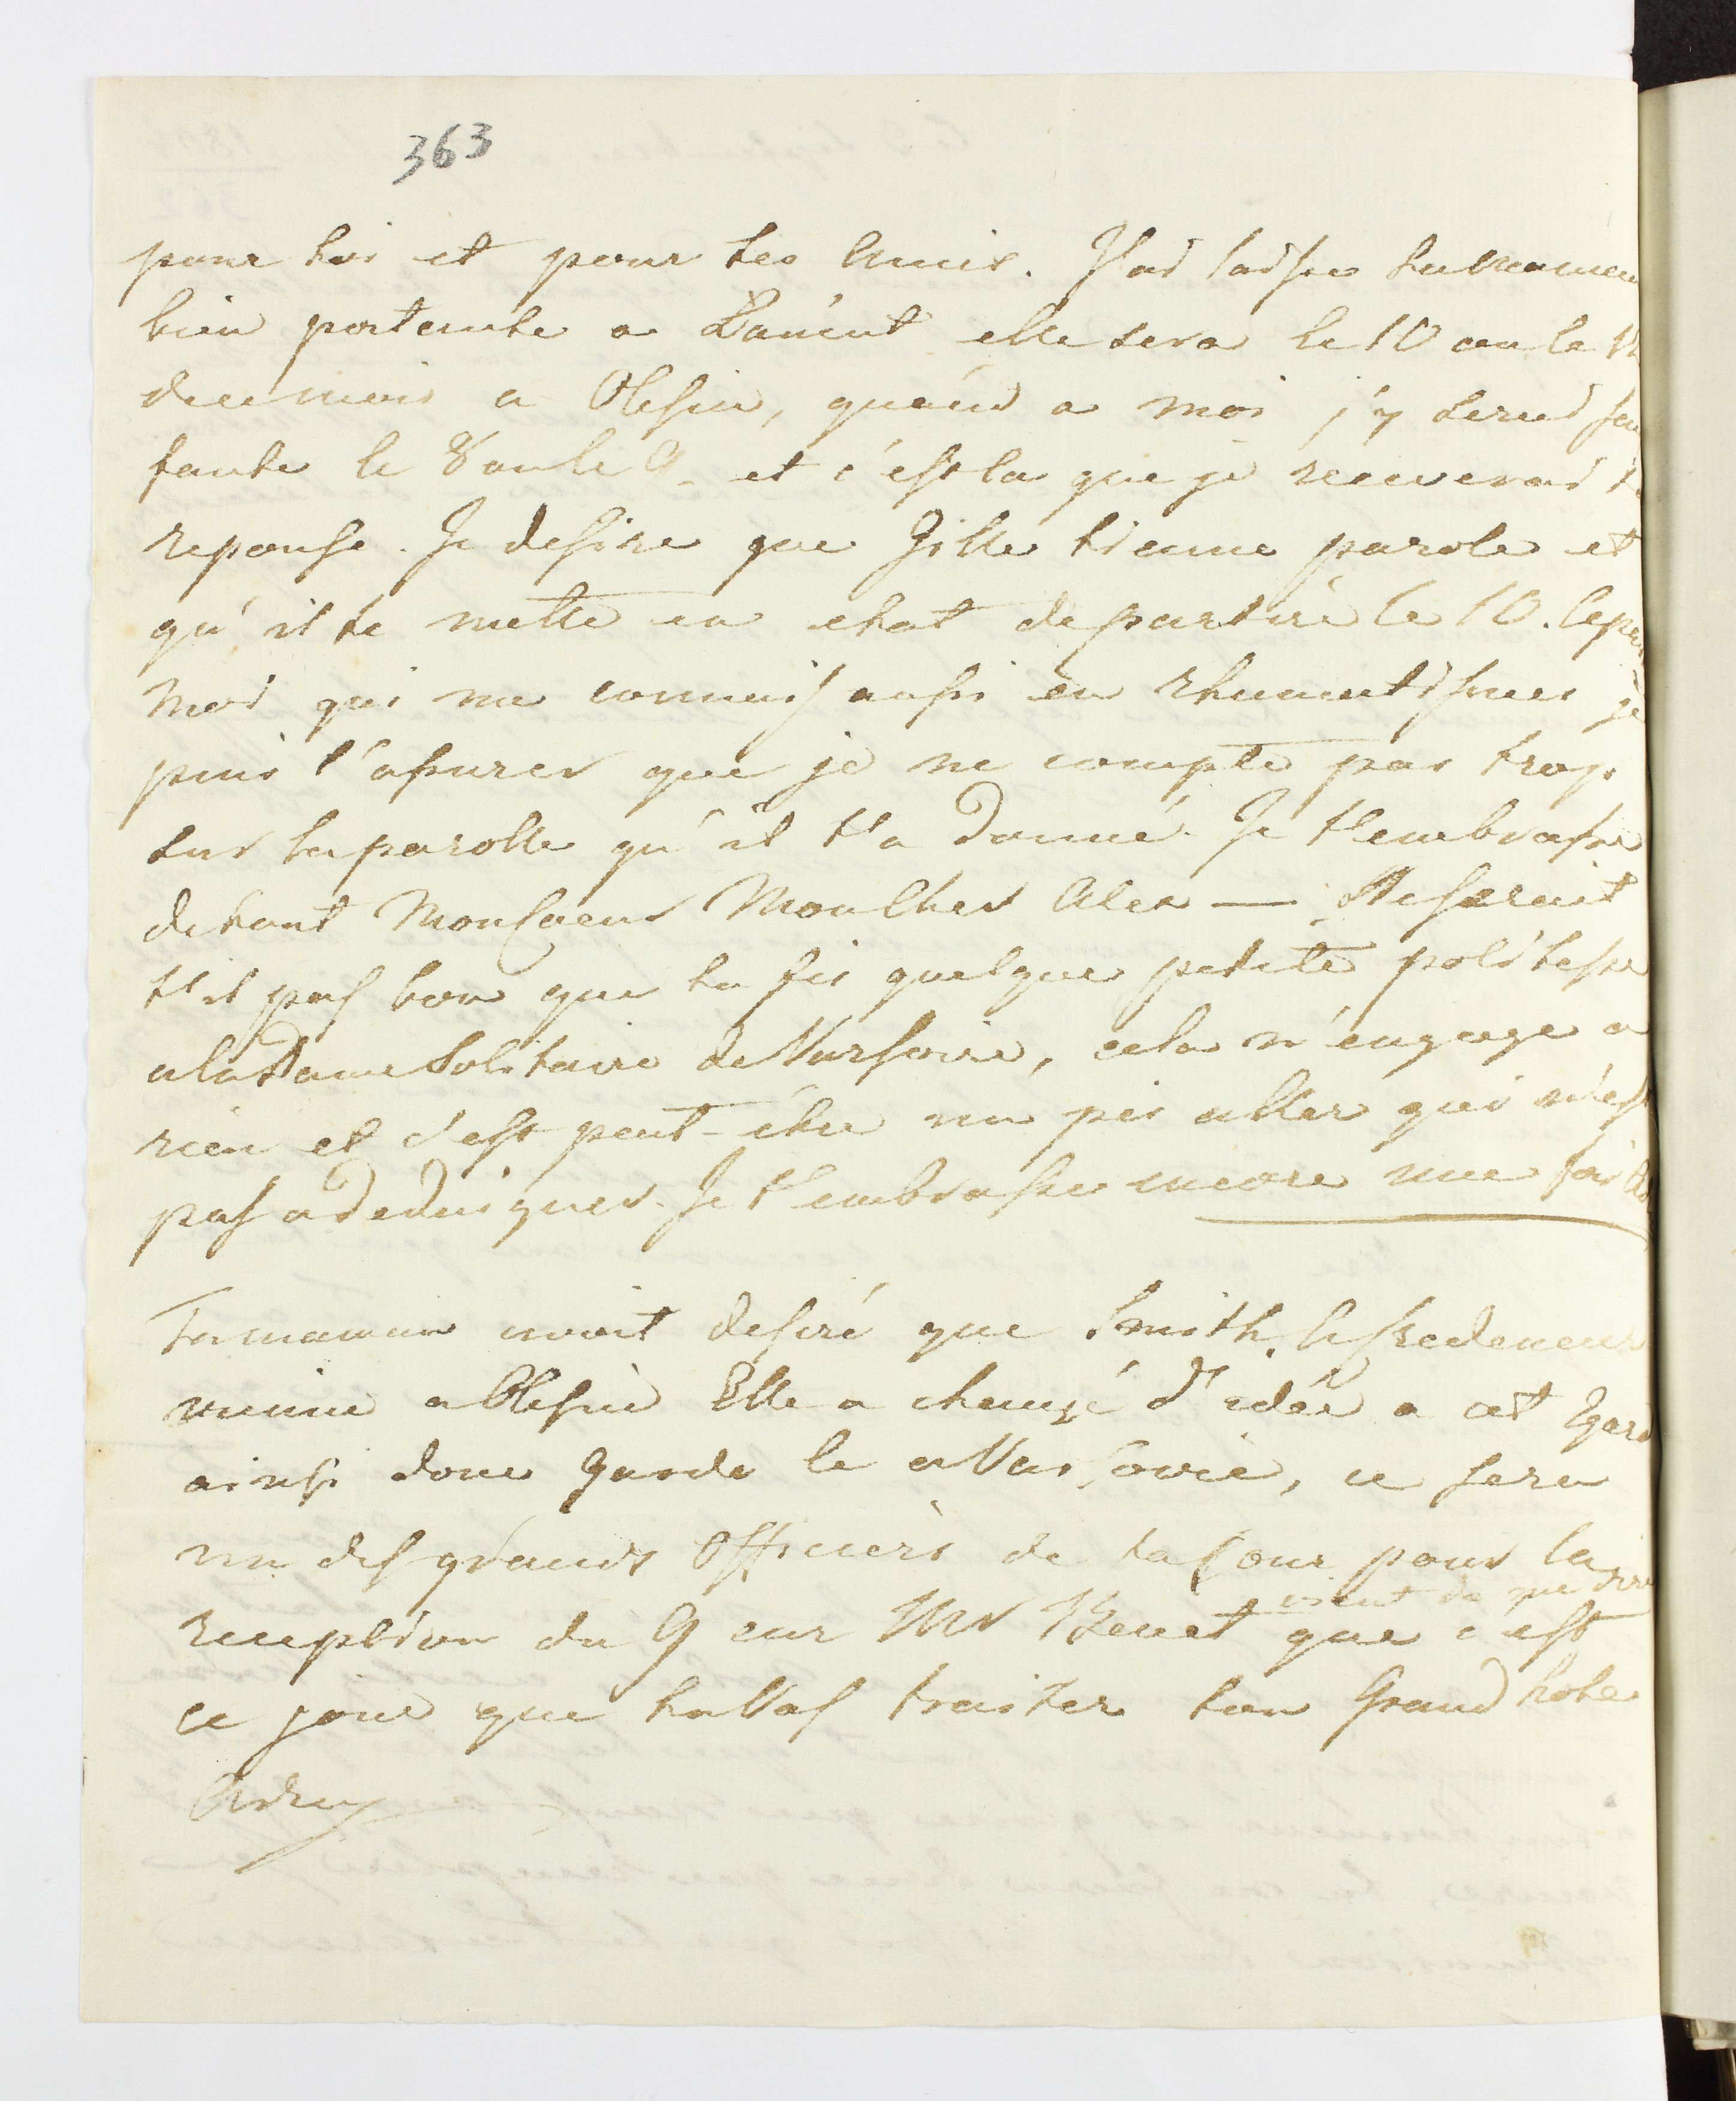 363
pour toi et pour tes Amis. J'ai laissé ta maman
bien portente a Lancut elle sera le 10 ou le
du mois a Olesin, quand a moi j'y serai
faute le 8 ou le 9. et c'est la que je recuverai
reponse. Je desire que Gille tienne parole et
qu'il te mette en etat de partir le 10.
Moi qui me connais aussi en Rhumatismes je
puis t'assurer que je ne compte pas trop
sur la parolle qu'il t'a donné. Je t'embrasse
de tout mon Coeur Mon Cher Ales — Ne serait
t'il pas bon que tu fis quelque petite politesse
a la Dame Solitaire de Varsovie, cela n'engage a
rien et c'est peut-être un pis aller qui n'est
pas a dedaigner. Je t'embrasse encore une fois
Ta maman avoit desiré que Smith,
vienne a Olesin Elle a changé d'idée a cet Egard
ainsi donc garde le a Varsovie, ce sera
un des grands Officiers de ta Cour pour la
vient de me dire
reception du 9 car Mr Benet que c'est
ce jour que tu Vas traiter ton Grand hote
Adieu